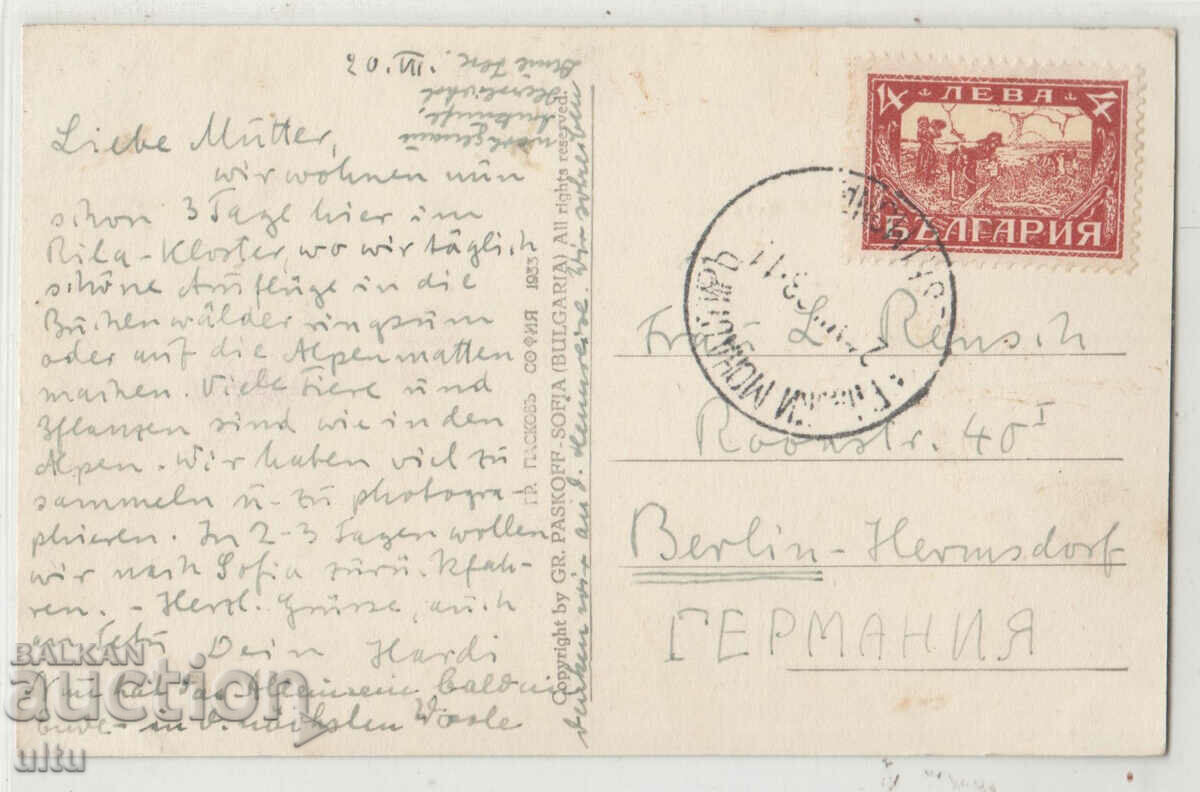 20. VII.
Liebe Mutter,
wir wohnen nun
schon 3 Tage hier im
Rila-Kloster, wo wir täglich
schöne Ausflüge in die
Buchenwälder ringsum
oder auf die Alpenmatten
machen. Viele Tiere und
Pflanzen sind wie in den
Alpen. Wir haben viel zu
sammeln u. zu photogra-
phieren. In 2-3 Tagen wollen
wir nach Sofia zurückfah-
ren. - Herzl. Grüsse, auch
Dein Hardi
Nun hat das Alleinsein bald ein
Ende - in d. nächsten Woche
denken wir an d. Heimreise. Wir schreiben
noch genaue
Ankunft.
ГР. ПАСКОВЪ СОФИЯ 1933
Copyright by GR. PASKOFF-SOFJA (BULGARIA) All rights reserved.
4 ЛЕВА 4
БЪЛГАРИЯ
РИЛСКИ МОНАСТИРЪ
Frau L. Rensch
Roonstr. 40 I
Berlin-Hermsdorf
ГЕРМАНИЯ
BALKAN
auction
ultu